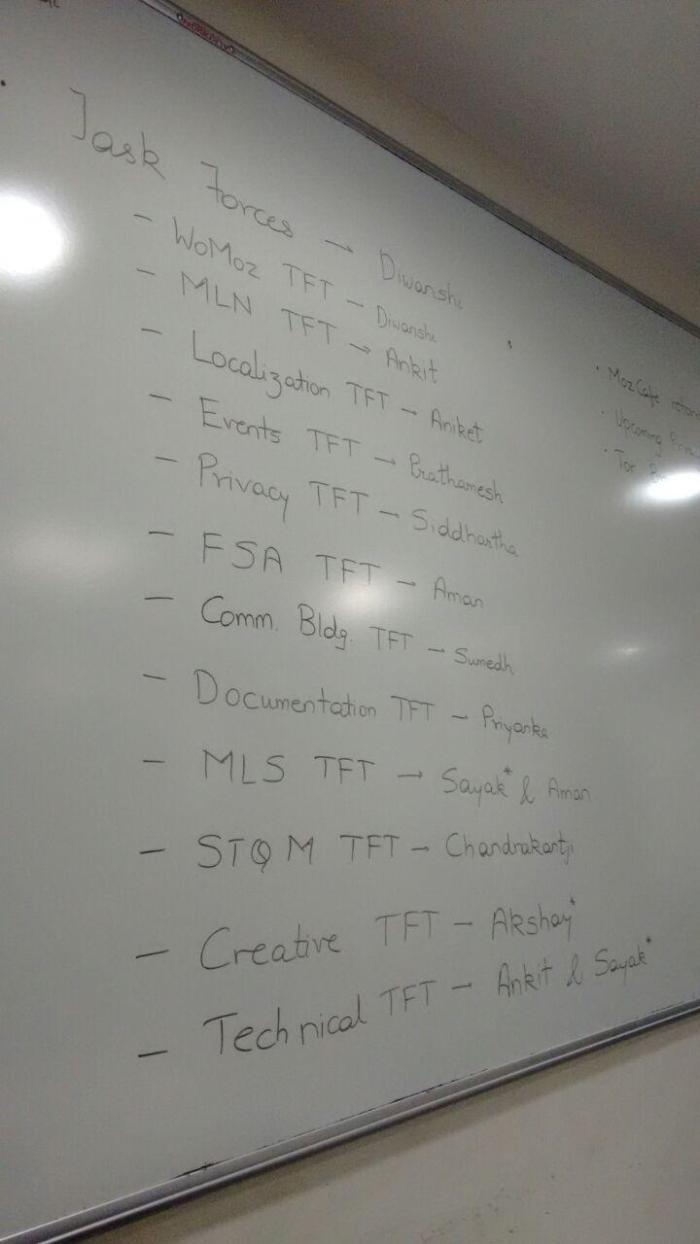 Task Forces → Diwanshi
- WoMoz TFT - Diwanshi
- MLN TFT → Ankit
- Localization TFT - Aniket
- Events TFT → Prathamesh
- Privacy TFT - Siddhartha
- FSA TFT - Aman
- Comm. Bldg. TFT - Sumedh
- Documentation TFT - Priyanka
- MLS TFT → Sayak* & Aman
- STQM TFT - Chandrakantji
- Creative TFT - Akshay*
- Technical TFT - Ankit & Sayak*
• MozCafe
• Upcoming
• Tor